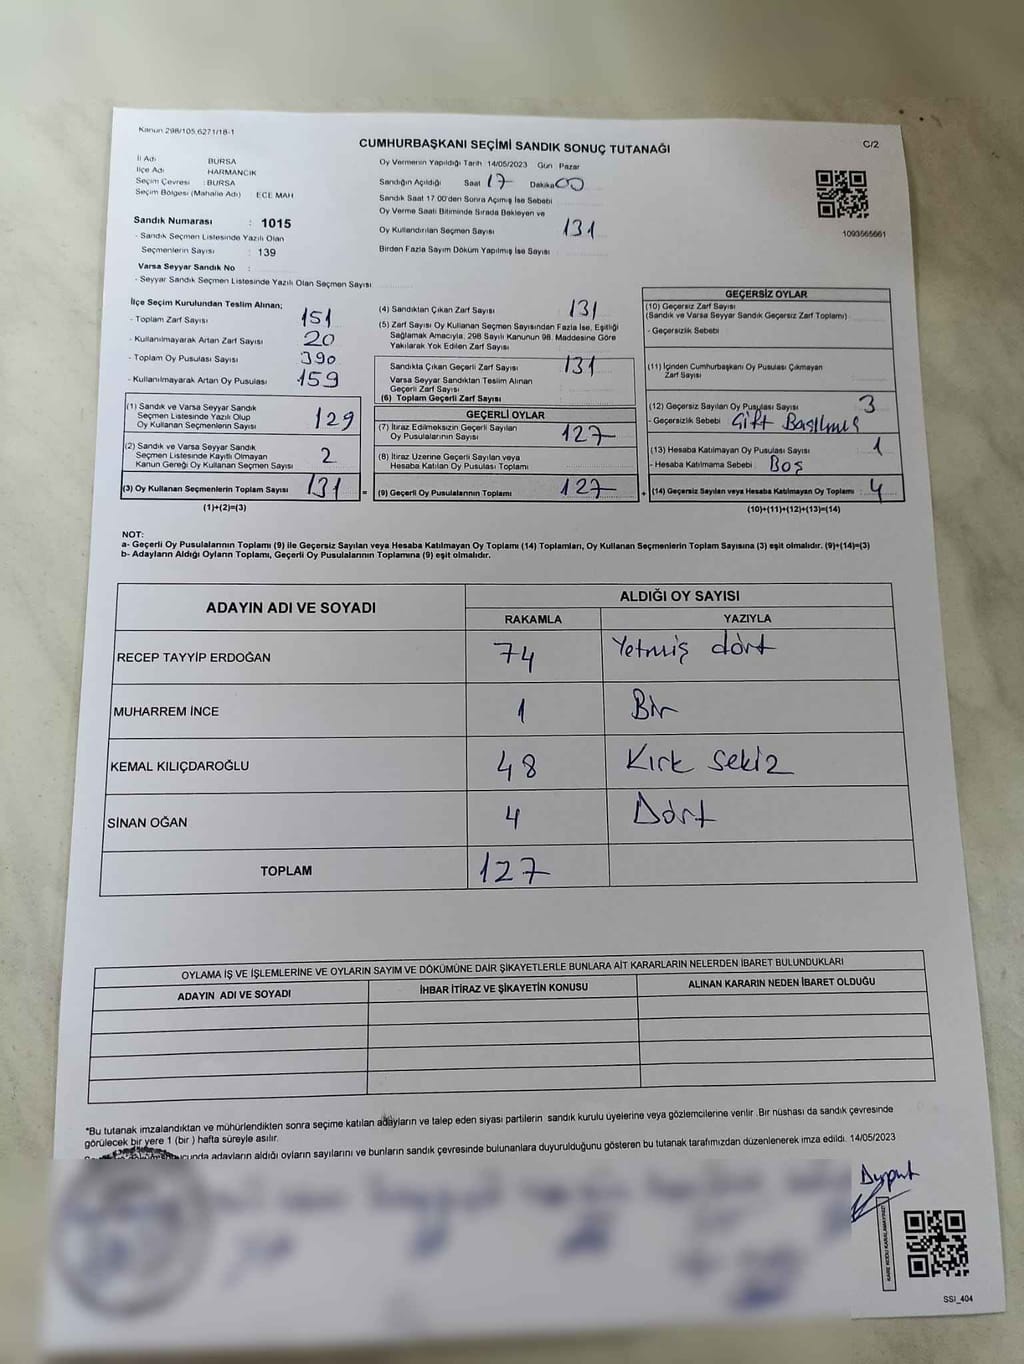 Kanun 298/105,6271/18-1
CUMHURBAŞKANI SEÇİMİ SANDIK SONUÇ TUTANAĞI
C/2
İl Adı : BURSA
İlçe Adı : HARMANCIK
Seçim Çevresi : BURSA
Seçim Bölgesi (Mahalle Adı) : ECE MAH
Sandık Numarası : 1015
- Sandık Seçmen Listesinde Yazılı Olan
Seçmenlerin Sayısı : 139
Varsa Seyyar Sandık No :
- Seyyar Sandık Seçmen Listesinde Yazılı Olan Seçmen Sayısı
Oy Vermenin Yapıldığı Tarih 14/05/2023 Gün : Pazar
Sandığın Açıldığı Saat 17 Dakika 00
Sandık Saat 17.00'den Sonra Açılmış İse Sebebi
Oy Verme Saati Bitiminde Sırada Bekleyen ve
Oy Kullandırılan Seçmen Sayısı 131
Birden Fazla Sayım Döküm Yapılmış İse Sayısı
1093565661
İlçe Seçim Kurulundan Teslim Alınan;
- Toplam Zarf Sayısı 151
- Kullanılmayarak Artan Zarf Sayısı 20
- Toplam Oy Pusulası Sayısı 390
- Kullanılmayarak Artan Oy Pusulası 159
(1) Sandık ve Varsa Seyyar Sandık
Seçmen Listesinde Yazılı Olup
Oy Kullanan Seçmenlerin Sayısı 129
(2) Sandık ve Varsa Seyyar Sandık
Seçmen Listesinde Kayıtlı Olmayan
Kanun Gereği Oy Kullanan Seçmen Sayısı 2
(3) Oy Kullanan Seçmenlerin Toplam Sayısı 131
(1)+(2)=(3)
(4) Sandıktan Çıkan Zarf Sayısı 131
(5) Zarf Sayısı Oy Kullanan Seçmen Sayısından Fazla İse, Eşitliği
Sağlamak Amacıyla, 298 Sayılı Kanunun 98. Maddesine Göre
Yakılarak Yok Edilen Zarf Sayısı
Sandıkta Çıkan Geçerli Zarf Sayısı 131
Varsa Seyyar Sandıktan Teslim Alınan
Geçerli Zarf Sayısı
(6) Toplam Geçerli Zarf Sayısı
GEÇERLİ OYLAR
(7) İtiraz Edilmeksizin Geçerli Sayılan
Oy Pusulalarının Sayısı 127
(8) İtiraz Üzerine Geçerli Sayılan veya
Hesaba Katılan Oy Pusulası Toplamı
= (9) Geçerli Oy Pusulalarının Toplamı 127
GEÇERSİZ OYLAR
(10) Geçersiz Zarf Sayısı
(Sandık ve Varsa Seyyar Sandık Geçersiz Zarf Toplamı)
- Geçersizlik Sebebi
(11) İçinden Cumhurbaşkanı Oy Pusulası Çıkmayan
Zarf Sayısı
(12) Geçersiz Sayılan Oy Pusulası Sayısı 3
- Geçersizlik Sebebi Çift Basılmış
(13) Hesaba Katılmayan Oy Pusulası Sayısı 1
- Hesaba Katılmama Sebebi Boş
+ (14) Geçersiz Sayılan veya Hesaba Katılmayan Oy Toplamı 4
(10)+(11)+(12)+(13)=(14)
NOT:
a- Geçerli Oy Pusulalarının Toplamı (9) ile Geçersiz Sayılan veya Hesaba Katılmayan Oy Toplamı (14) Toplamları, Oy Kullanan Seçmenlerin Toplam Sayısına (3) eşit olmalıdır. (9)+(14)=(3)
b- Adayların Aldığı Oyların Toplamı, Geçerli Oy Pusulalarının Toplamına (9) eşit olmalıdır.
ADAYIN ADI VE SOYADI
ALDIĞI OY SAYISI
RAKAMLA YAZIYLA
RECEP TAYYİP ERDOĞAN 74 Yetmiş dört
MUHARREM İNCE 1 Bir
KEMAL KILIÇDAROĞLU 48 Kırk sekiz
SİNAN OĞAN 4 Dört
TOPLAM 127
OYLAMA İŞ VE İŞLEMLERİNE VE OYLARIN SAYIM VE DÖKÜMÜNE DAİR ŞİKAYETLERLE BUNLARA AİT KARARLARIN NELERDEN İBARET BULUNDUKLARI
ADAYIN ADI VE SOYADI İHBAR İTİRAZ VE ŞİKAYETİN KONUSU ALINAN KARARIN NEDEN İBARET OLDUĞU
*Bu tutanak imzalandıktan ve mühürlendikten sonra seçime katılan adayların ve talep eden siyasi partilerin sandık kurulu üyelerine veya gözlemcilerine verilir .Bir nüshası da sandık çevresinde
görülecek bir yere 1 (bir ) hafta süreyle asılır.
adayların aldığı oyların sayılarını ve bunların sandık çevresinde bulunanlara duyurulduğunu gösteren bu tutanak tarafımızdan düzenlenerek imza edildi. 14/05/2023
KARE KODU KARALAMAYINIZ
SSİ_404